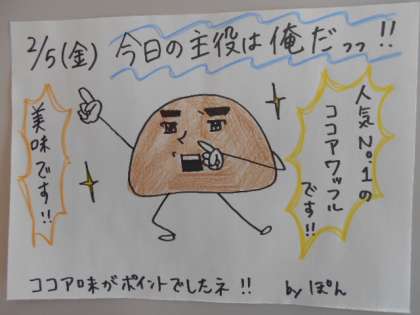 2/5(金) 今日の主役は俺だっっ!!
人気No.1の
ココアワッフル
です!!
美味です!!
ココア味がポイントでしたネ!! by ぽん